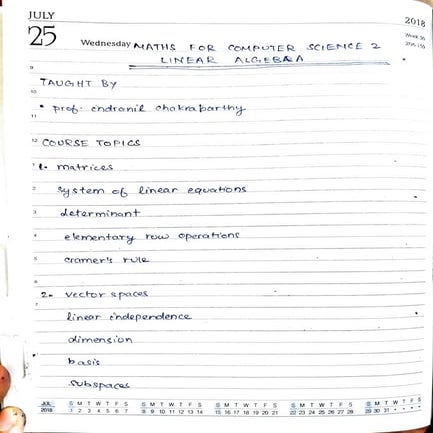 JULY
2018
25
Wednesday MATHS FOR COMPUTER SCIENCE 2
LINEAR ALGEBRA
9
TAUGHT BY
10
• prof. indranil chakrabarthy
11
12 COURSE TOPICS
1. matrices
2 system of linear equations
3 determinant
4 elementary row operations
5 cramer's rule
6
2. vector spaces
7
linear independence
dimension
basis
subspaces
JUL S M T W T F S S M T W T F S S M T W T F S S M T W T F S S M T W T F S
2018 1 2 3 4 5 6 7 8 9 10 11 12 13 14 15 16 17 18 19 20 21 22 23 24 25 26 27 28 29 30 31 • • • •